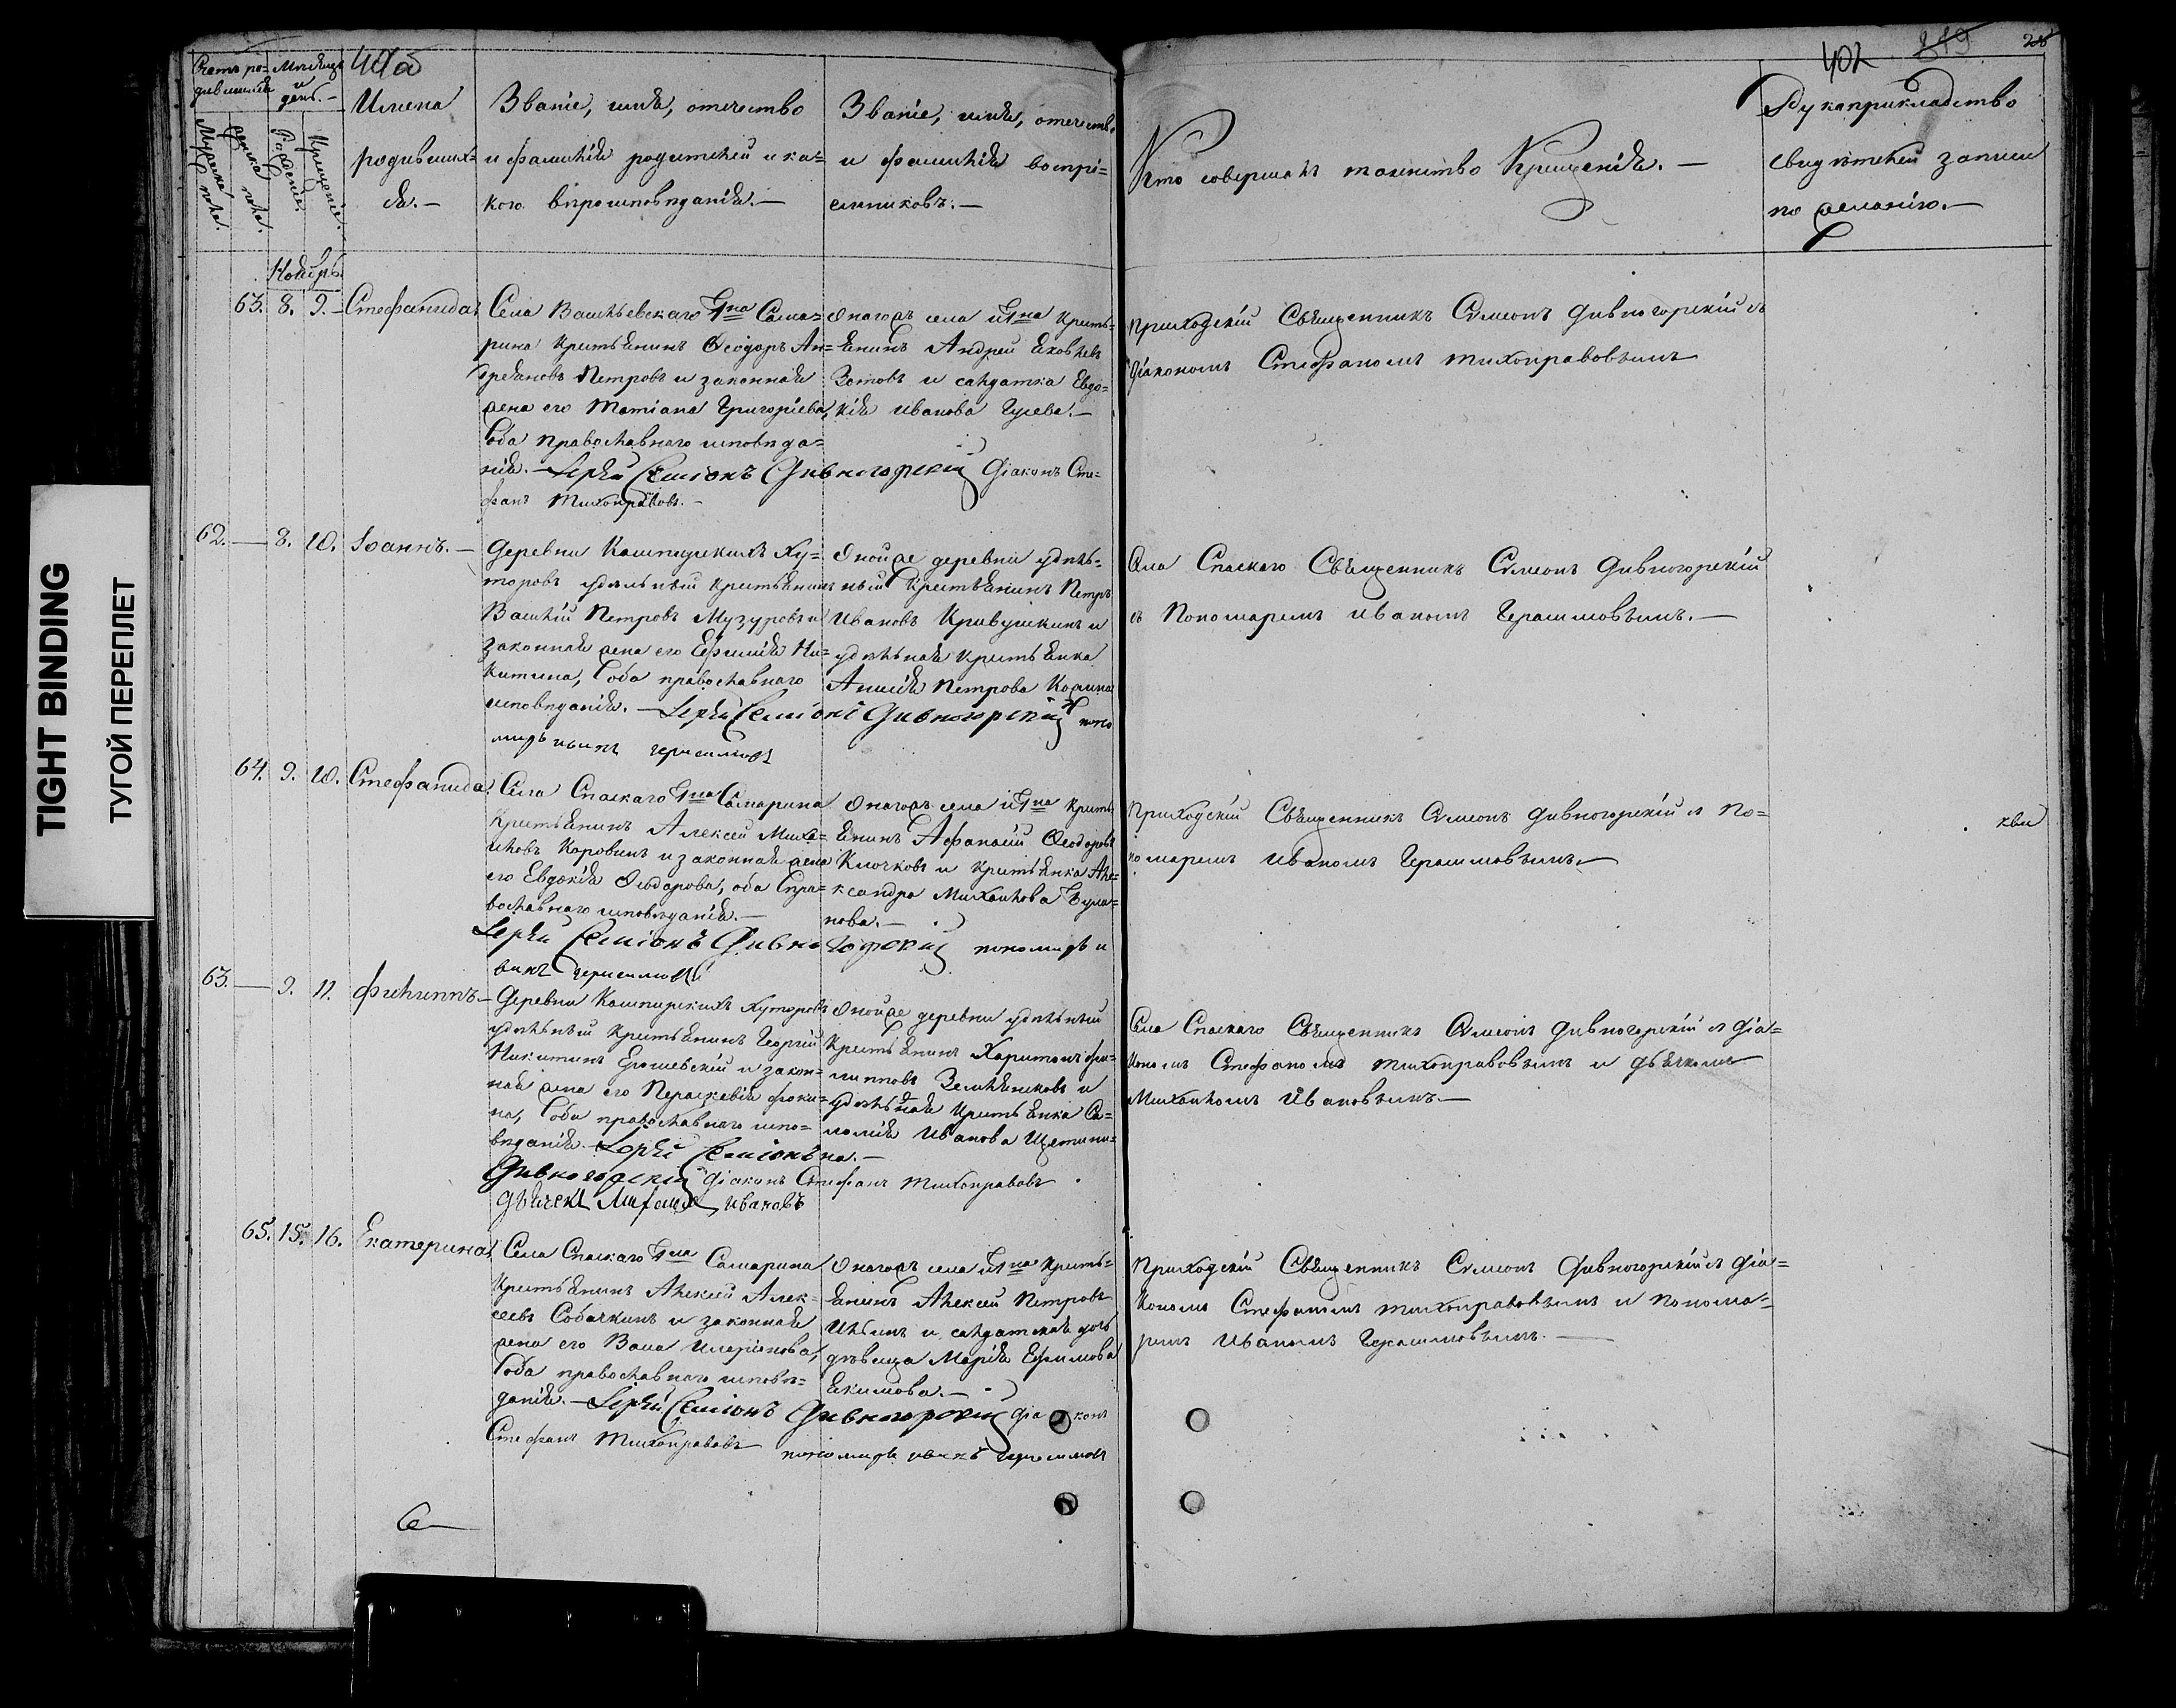 TIGHT BINDING
ТУГОЙ ПЕРЕПЛЕТ
402
819
Счетъ ро-
дившихся
Мужеска пола.
Женска пола.
Мѣсяцъ
и
день.
Рожденіе.
Крещеніе.
Имена
родивших=
ся.
Званіе, имя, отечество
и фамилія родителей и ка=
кого вѣроисповѣданія.
Званіе, имя, отечество
и фамилія воспрі=
емниковъ.
Кто совершалъ таинство Крещенія.
Рукоприкладство
свидѣтелей записи
по желанію.
Ноябрь
63. 8. 9. Стефанида.
Села Васильевскаго Гна Сама=
рина крестьянинъ Ѳеодоръ Ан=
дреяновъ Петровъ и законная
жена его Татіана Григоріева,
оба православнаго исповѣда=
нія. Іерей Симеонъ Дивногорскій Діаконъ Сте=
фанъ Тихонравовъ.
Онагожъ села и Гна кресть=
янинъ Андрей Яковлевъ
Зотовъ и салдатка Евдо=
кія Иванова Гусева.
Приходскій Священникъ Симеонъ Дивногорскій съ
діакономъ Стефаномъ Тихонравовымъ
62. 8. 10. Іоаннъ.
Деревни Кашпирскихъ Ху=
торовъ удѣльный крестьянинъ
Василій Петровъ Музуровъ и
законная жена его Ефимія Ни=
китина, оба православнаго
исповѣданія. Іерей Симеонъ Дивногорскій поно
марь Иванъ Герасимовъ
Онойже деревни удѣль=
ный крестьянинъ Петръ
Ивановъ Кривушкинъ и
удѣльная крестьянка
Анисія Петрова
Села Спаскаго Священникъ Симеонъ Дивногорскій
съ Пономаремъ Иваномъ Герасимовымъ.
64. 9. 10. Стефанида.
Села Спаскаго Гна Самарина
крестьянинъ Алексей Михай=
иловъ Коровинъ и законная жена
его Евдокія Ѳеодорова, оба пра=
вославнаго исповѣданія.
Іерей Симеонъ Дивногорскій пономарь И
ванъ Герасимовъ
Онагожъ села и Гна кресть
янинъ Афанасій Ѳеодоровъ
Клочковъ и крестьянка Але=
ксандра Михайлова
нова.
Приходскій Священникъ Симеонъ Дивногорскій съ По=
номаремъ Иваномъ Герасимовымъ.
63. 9. 11. Филиппъ.
Деревни Кашпирскихъ Хуторовъ
удѣльный крестьянинъ Георгій
Никитинъ Ерошевскій и закон=
ная жена его Параскевія Фоки=
на, оба православнаго испо=
вѣданія. Іерей Симеонъ
Дивногорскій Діаконъ Стефанъ Тихонравовъ
дьячекъ Михаилъ Ивановъ
Онойже деревни удѣльный
крестьянинъ Харитонъ Фи=
липповъ Землянсковъ и
удѣльная крестьянка Са=
ломія Иванова Щетини=
на.
Села Спаскаго Священникъ Симеонъ Дивногорскій съ діа=
кономъ Стефаномъ Тихонравовымъ и дьячкомъ
Михаиломъ Ивановымъ.
65. 15. 16. Екатерина.
Села Спаскаго Гна Самарина
крестьянинъ Алексей Алек=
сеевъ Собачкинъ и законная
жена его Васса Иларіонова,
оба православнаго исповѣ=
данія. Іерей Симеонъ Дивногорскій діаконъ
Стефанъ Тихонравовъ пономарь Иванъ Герасимовъ
Онагожъ села и Гна кресть=
янинъ Алексей Петровъ
Ильинъ и салдатская дочь
дѣвица Марія Ефимова
Екимова.
Приходскій Священникъ Симеонъ Дивногорскій съ діа=
кономъ Стефаномъ Тихонравовымъ и понома=
ремъ Иваномъ Герасимовымъ.